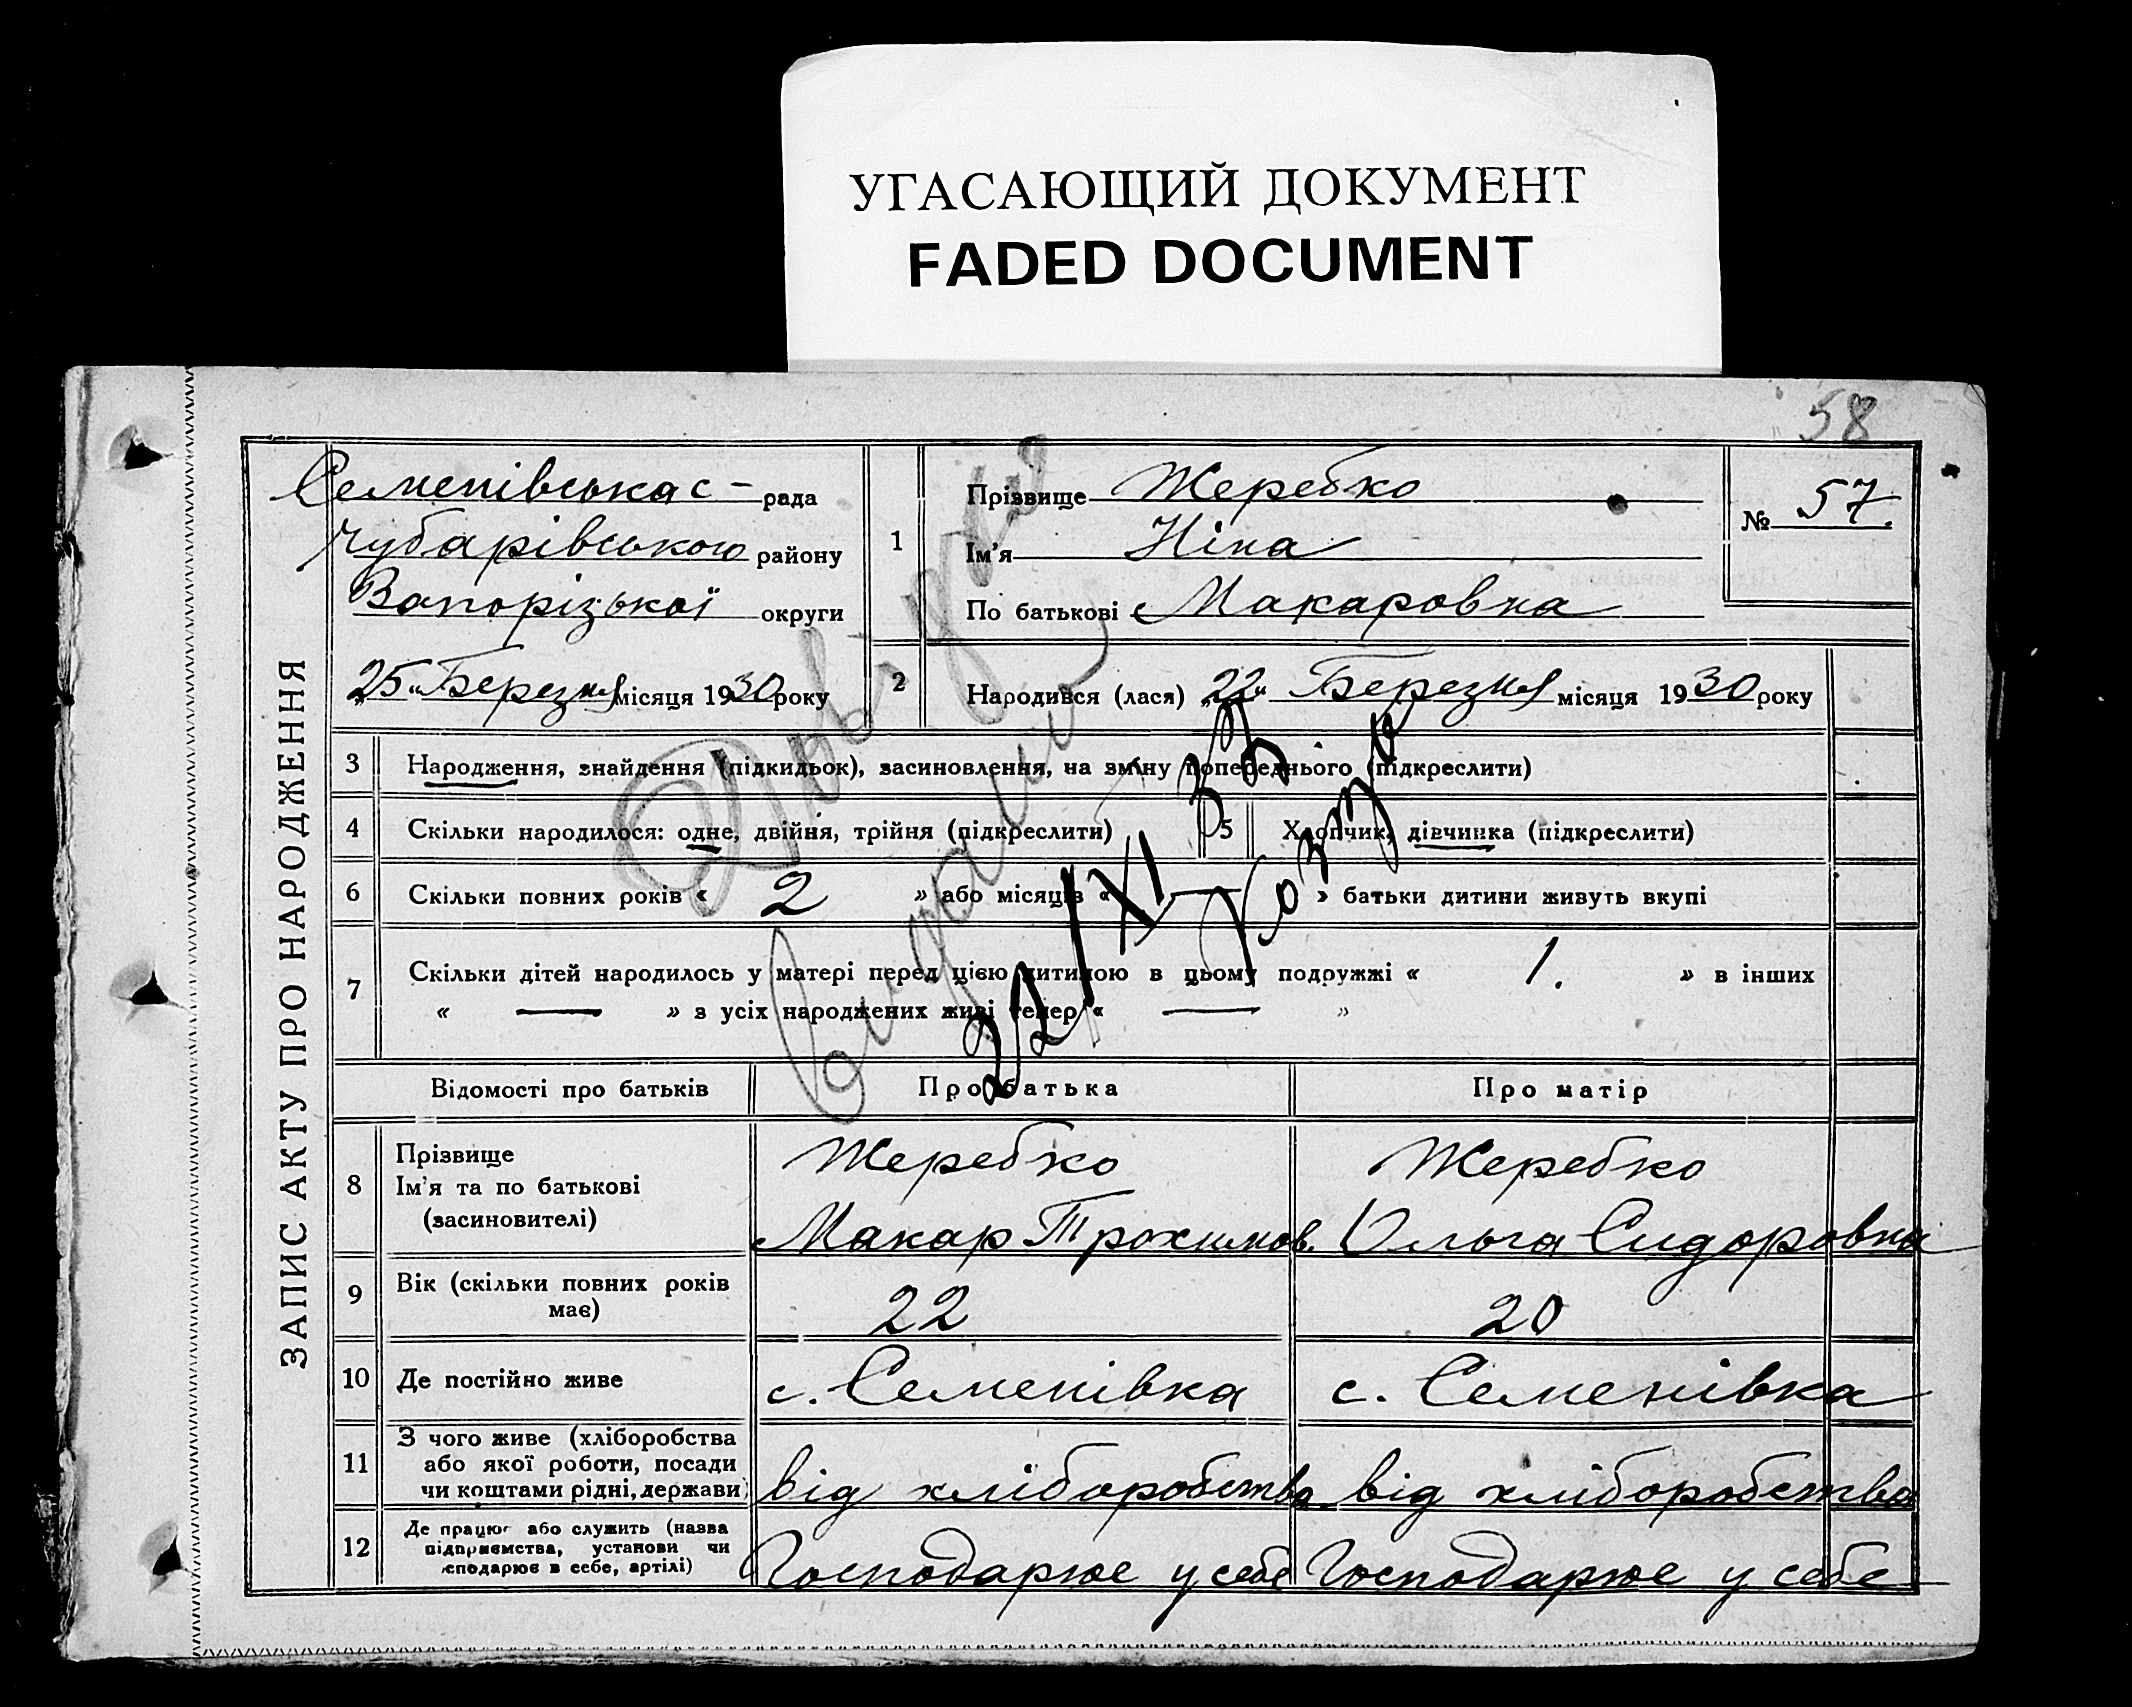 УГАСАЮЩИЙ ДОКУМЕНТ
FADED DOCUMENT
58
ЗАПИС АКТУ ПРО НАРОДЖЕННЯ
Семенівська с – рада
Чубарівського району
Запорізької округи
„25“ Березня місяця 1930 року
1
Прізвище Жеребко
Ім’я Ніна
По батькові Макаровна
№ 57.
2 Народився (лася) „22“ Березня місяця 1930 року
3 Народження, знайдення (підкидьок), засиновлення, на зміну попереднього (підкреслити)
4 Скільки народилося: одне, двійня, трійня (підкреслити) 5 Хлопчик, дівчинка (підкреслити)
6 Скільки повних років « 2 » або місяців « » батьки дитини живуть вкупі
7 Скільки дітей народилось у матері перед цією дитиною в цьому подружжі « 1. » в інших
« — » з усіх народжених живі тепер « — »
Видано
22/XI
Відомості про батьків Про батька Про матір
8 Прізвище
Ім’я та по батькові
(засиновителі)
Жеребко
Макар Трохимов.
Жеребко
Ольга Сидоровна
9 Вік (скільки повних років
має)
22 20
10 Де постійно живе с. Семенівка с. Семенівка
11 З чого живе (хліборобства
або якої роботи, посади
чи коштами рідні, держави)
від хліборобства від хліборобства
12 Де працює або служить (назва
підприємства, установи чи
господарює в себе, артілі)
Господарює у себе Господарює у себе